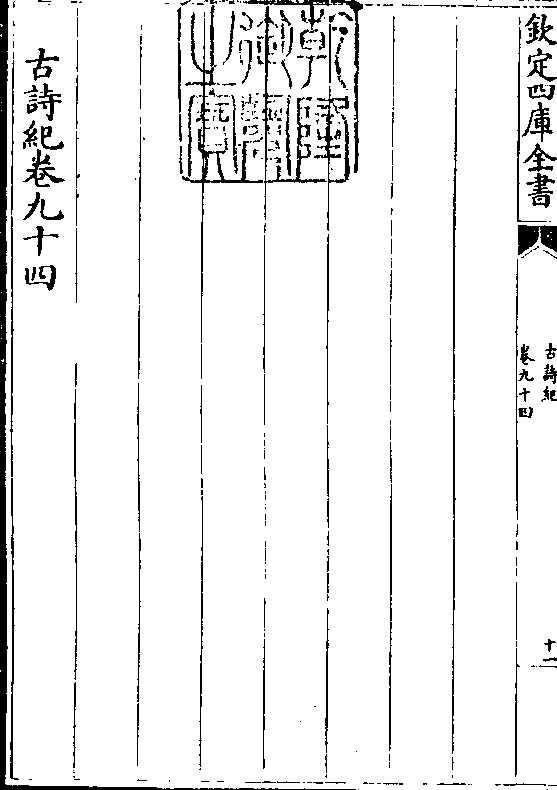 欽定四庫全書
古詩紀
卷九十四
十一
乾隆
御覽
之寶
古詩紀卷九十四